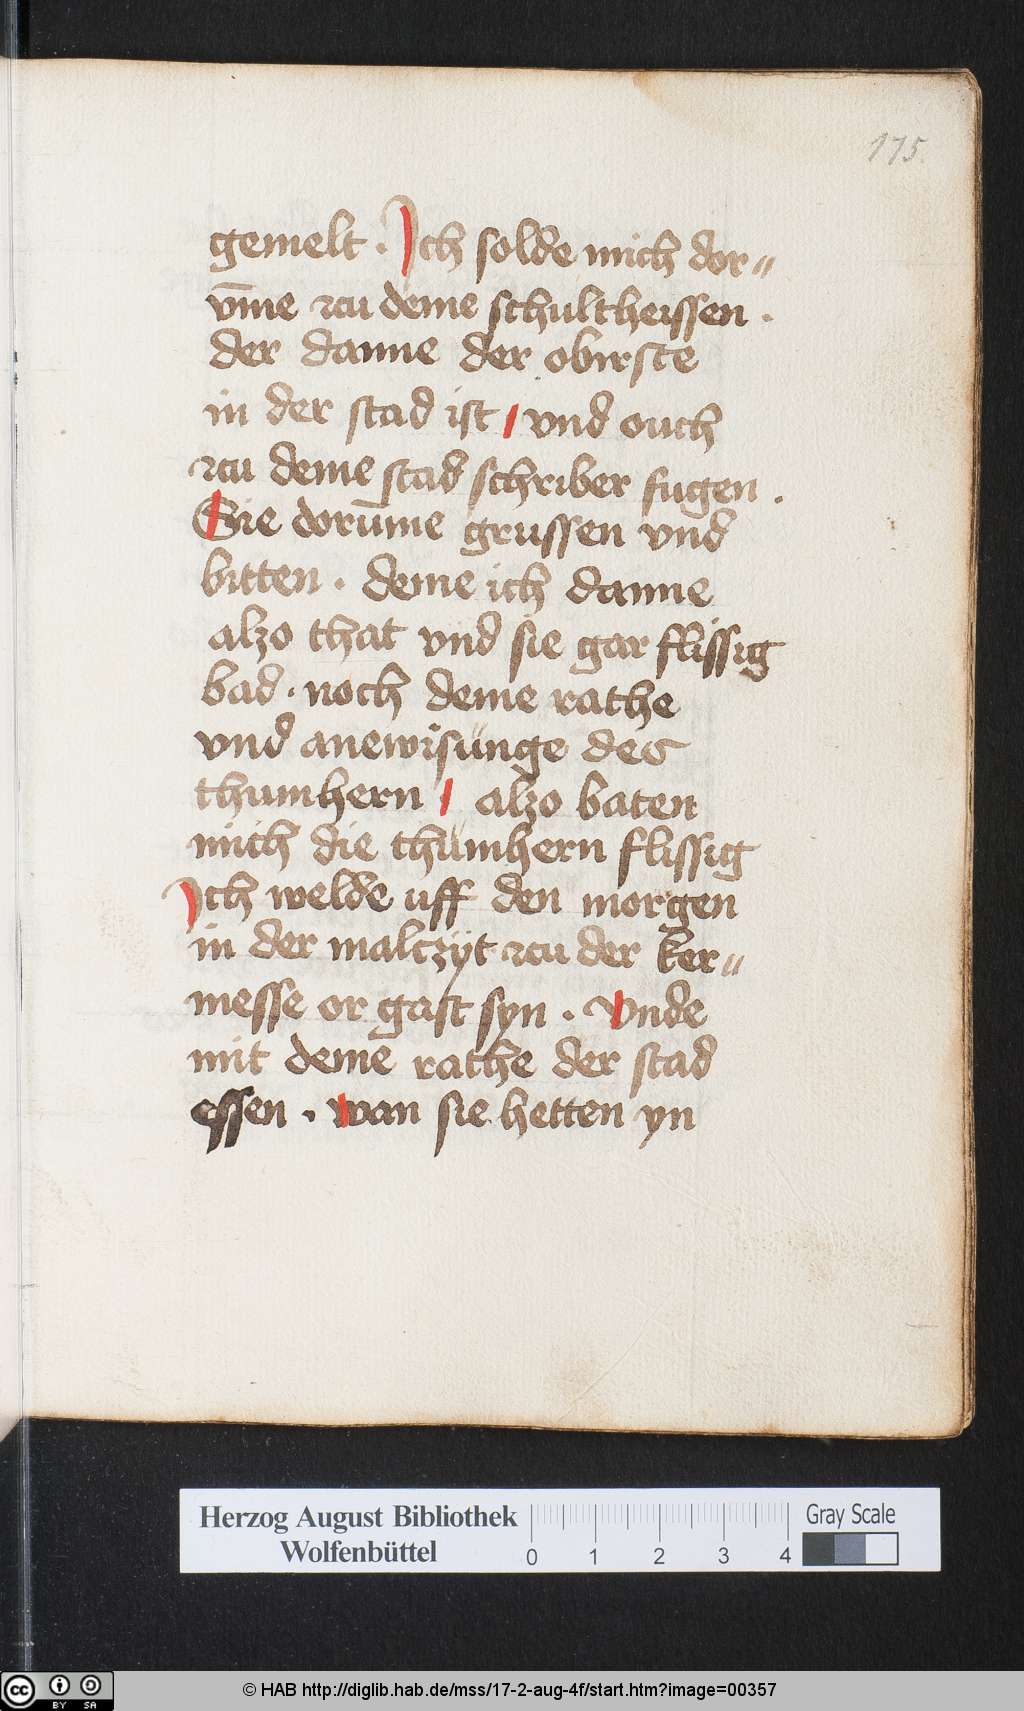 175.
gemelt . Ich solde mich dor〃
vm̄e zcu deme schultheissen .
der danne der obirste
in der stad ist / vnd ouch
zcu deme stad schriber fugen .
Sie dorum̄e grussen vnd
bitten . deme ich danne
alzo that vnd sie gar flissig
bad . noch deme rathe
vnd anewisunge des
thumhern / alzo baten
mich die thumhern flissig
Ich welde uff den morgen
in der malczÿt zcu der ker〃
messe or gast syn . Vnde
mit deme rathe der stad
essen . wan sie hetten yn
Herzog August Bibliothek
Wolfenbüttel
0 1 2 3 4
Gray Scale
cc BY SA
© HAB http://diglib.hab.de/mss/17-2-aug-4f/start.htm?image=00357